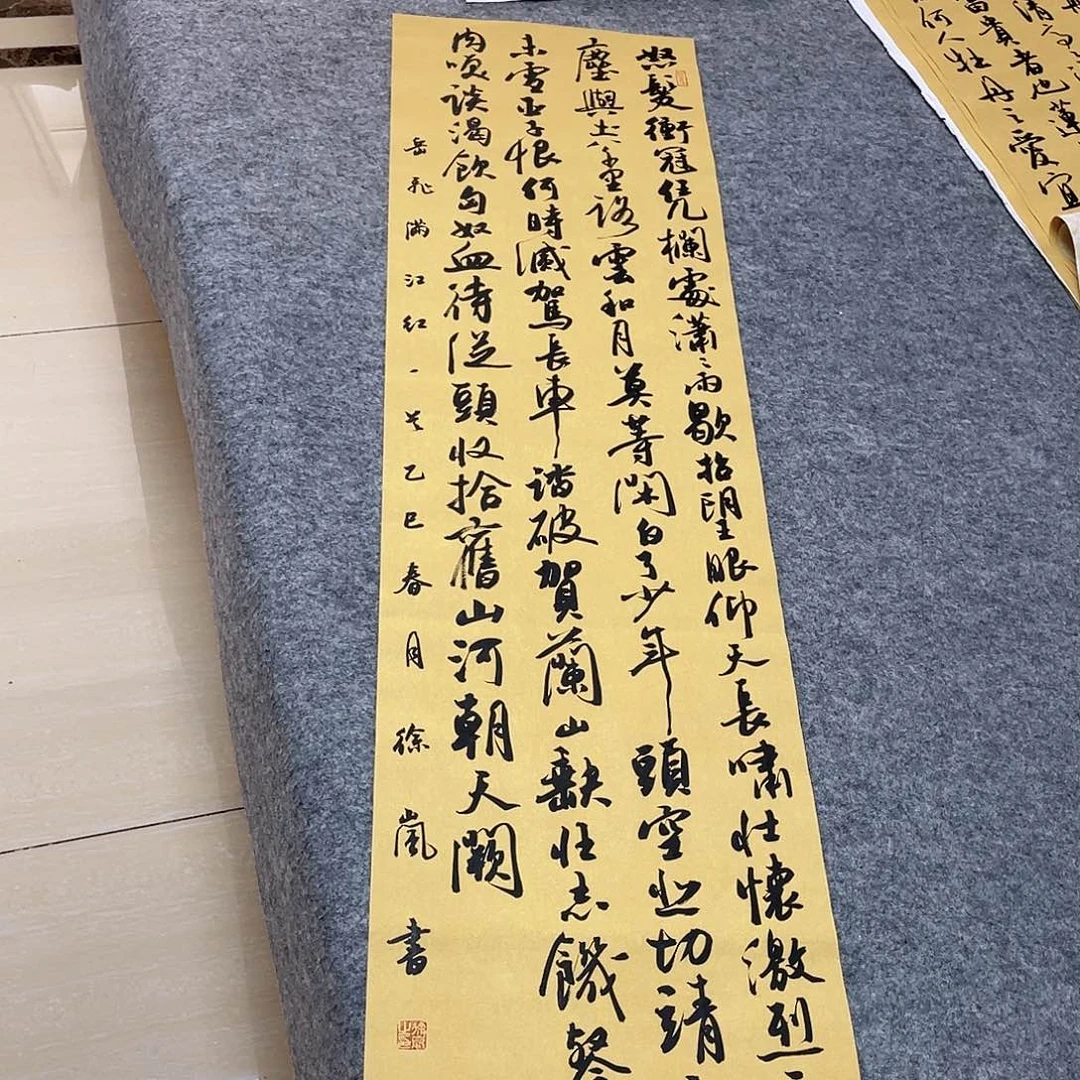 怒髮衝冠凭欄處瀟瀟雨歇抬望眼仰天長嘯壯懷激烈
塵與土八千里路雲和月莫等閑白了少年頭空悲切靖
未雪臣子恨何時滅駕長車踏破賀蘭山缺壯志饑餐
肉咲談渴飲匈奴血待從頭收拾舊山河朝天闕
岳飛滿江紅一首乙巳春月徐嵐書
富貴者也蓮
何人牡丹之愛宜